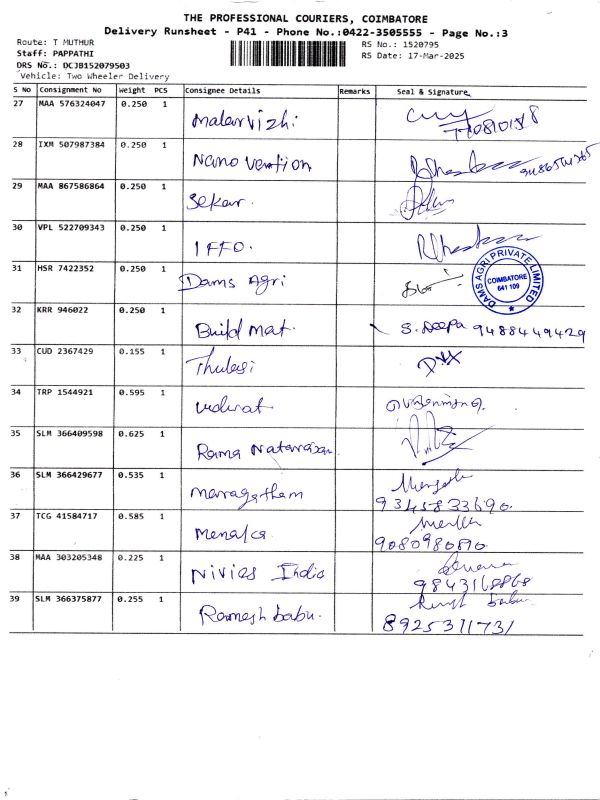 THE PROFESSIONAL COURIERS, COIMBATORE
Delivery Runsheet - P41 - Phone No.:0422-3505555 - Page No.:3
Route: T MUTHUR
RS No.: 1520795
Staff: PAPPATHI
RS Date: 17-Mar-2025
DRS No.: DCJB152079503
Vehicle: Two Wheeler Delivery
S No Consignment No Weight PCS Consignee Details Remarks Seal & Signature
27 MAA 576324047 0.250 1 Malarvizhi
28 IXM 507987384 0.250 1 Nano Vention
29 MAA 867586864 0.250 1 Sekar.
30 VPL 522709343 0.250 1 IFFO.
31 HSR 7422352 0.250 1 Dams Agri
DAMS AGRI PRIVATE LIMITED
COIMBATORE
641 109
32 KRR 946022 0.250 1 Build Mat. S. Deepa 9488449429
33 CUD 2367429 0.155 1 Thulasi
34 TRP 1544921 0.595 1
35 SLM 366409598 0.625 1 Rama Natarajan
36 SLM 366429677 0.535 1 Maragatham
9345833690.
37 TCG 41584717 0.585 1 Menaka
9080980890.
38 MAA 303205348 0.225 1 Nivias India
9843168868
39 SLM 366375877 0.255 1 Rameshbabu. babu
8925311731